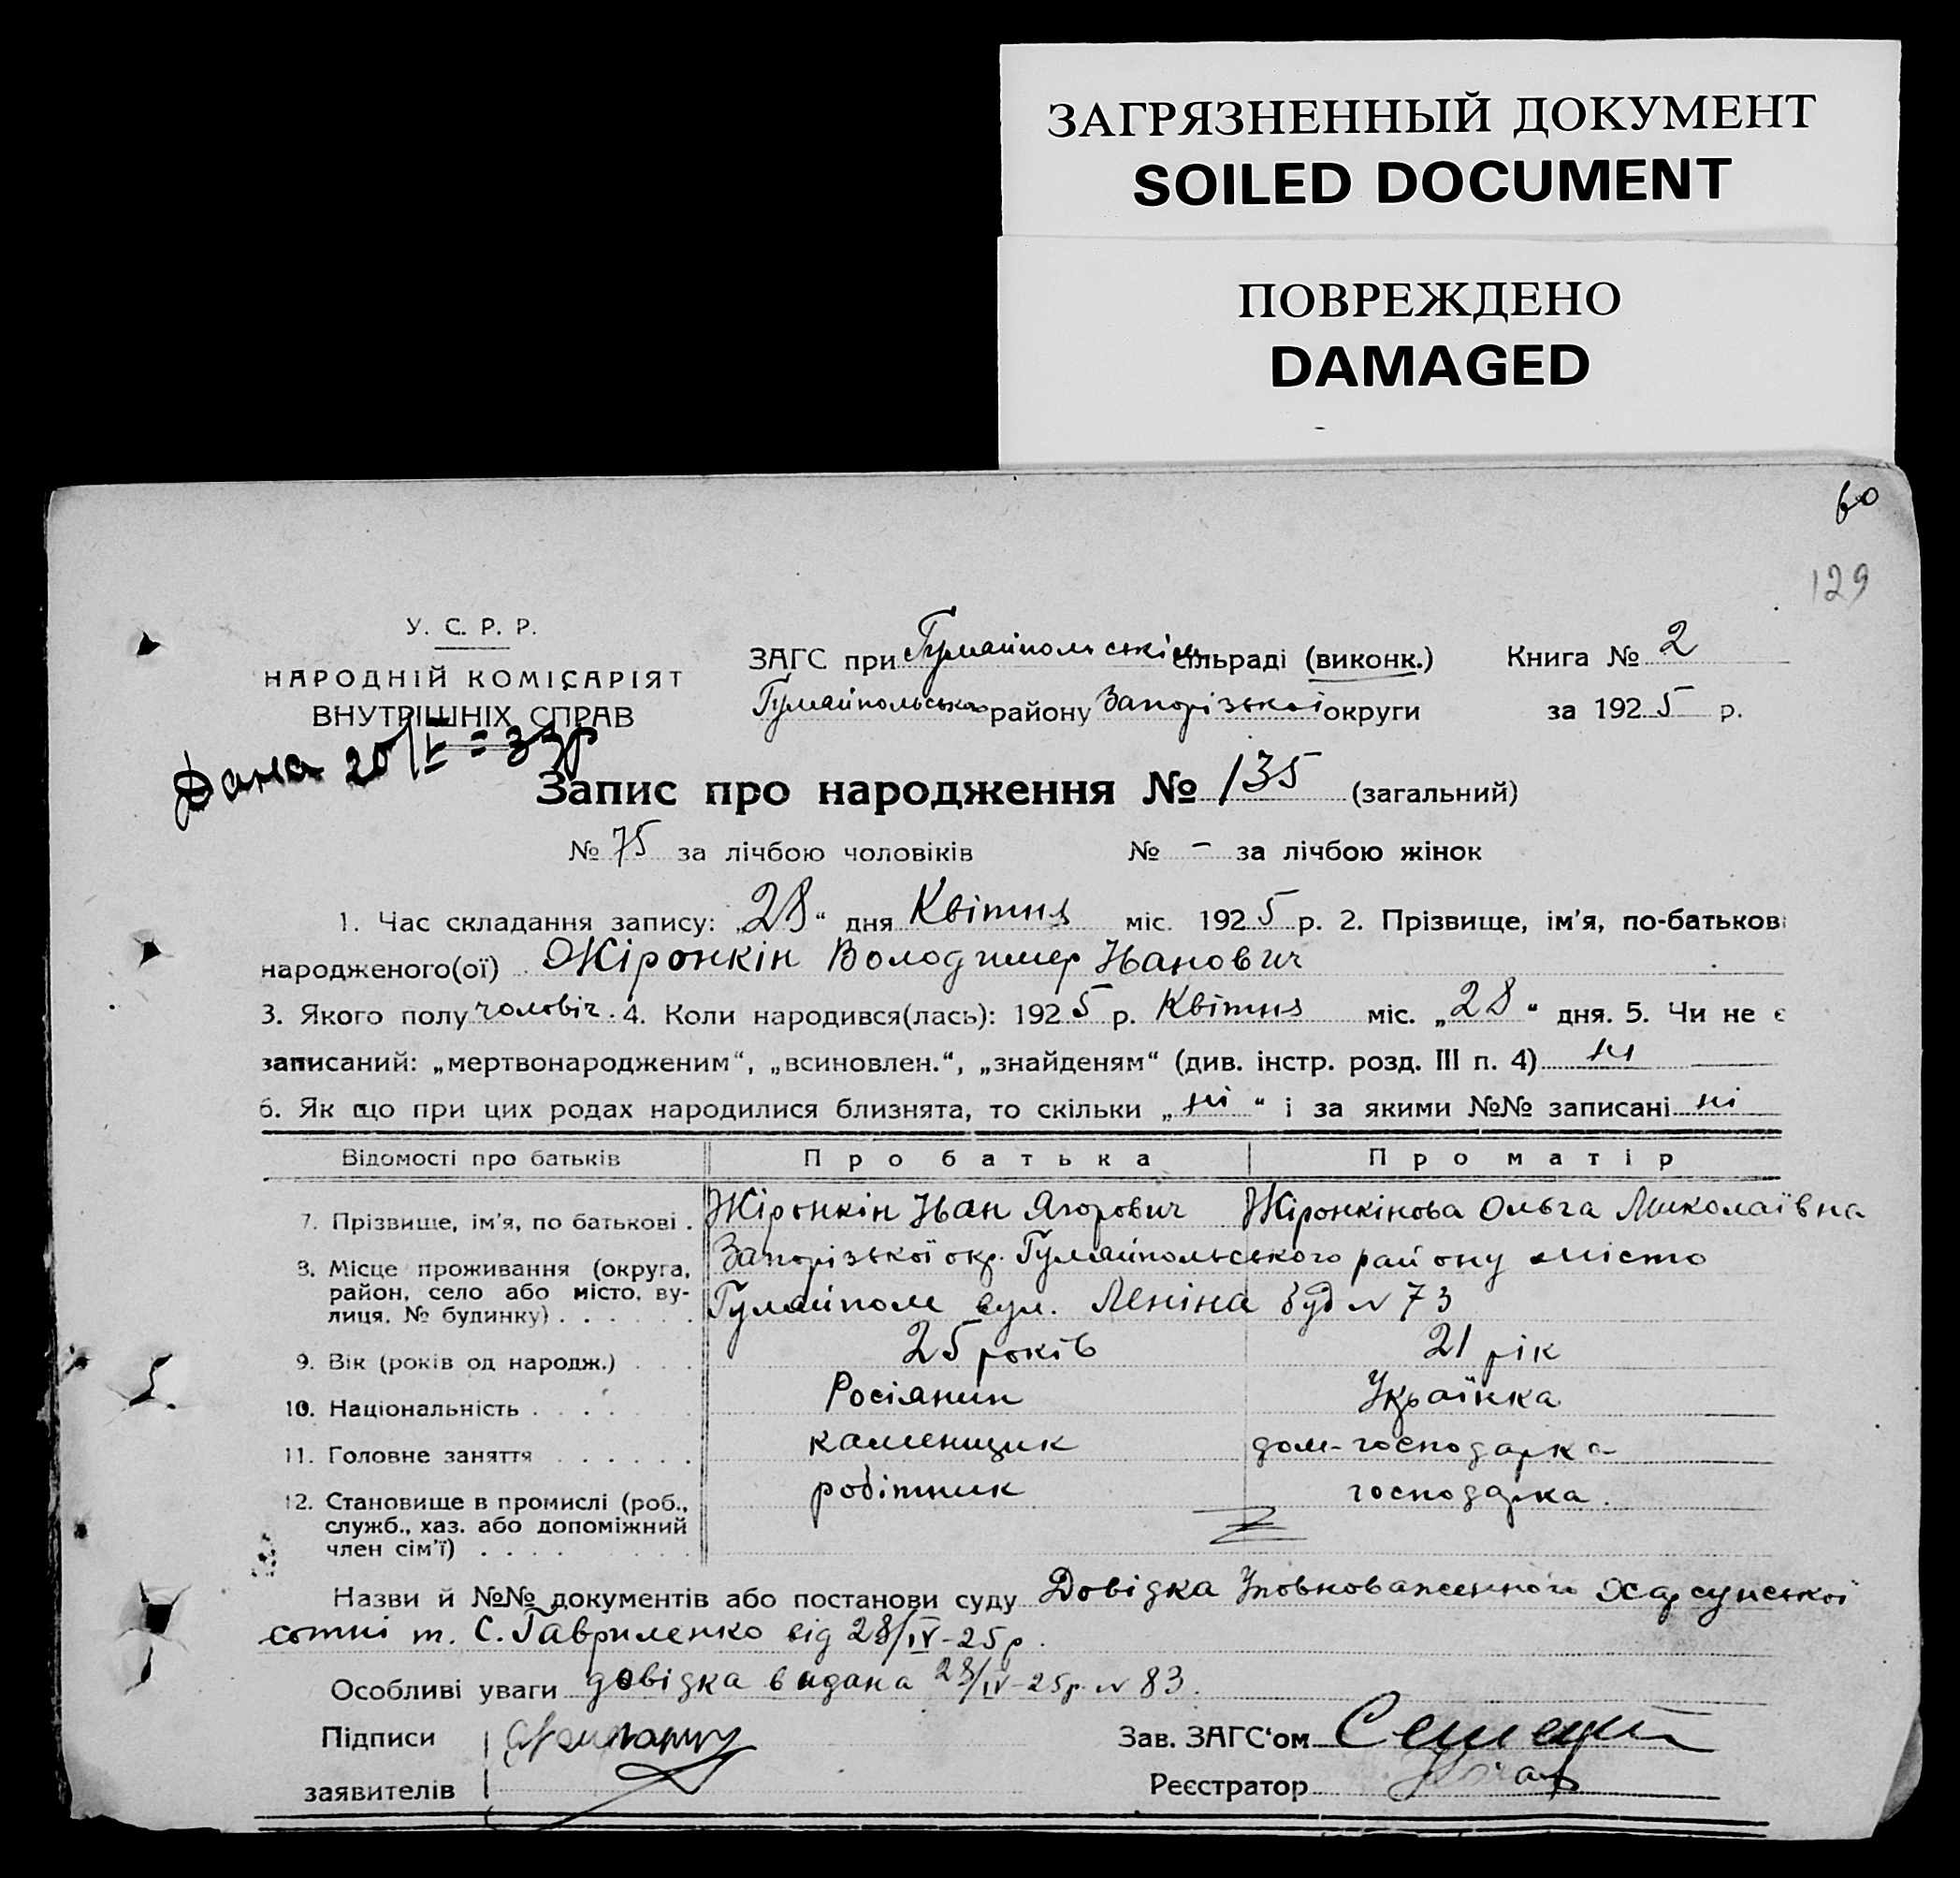 ЗАГРЯЗНЕННЫЙ ДОКУМЕНТ
SOILED DOCUMENT
ПОВРЕЖДЕНО
DAMAGED
60
129
У. С. Р. Р.
НАРОДНІЙ КОМІСАРІЯТ
ВНУТРІШНІХ СПРАВ
ЗАГС при Гуляйпольськім сільраді (виконк.) Книга № 2
Гуляйпольського району Запорізької округи за 1925 р.
Дана 20/ - 33р
Запис про народження № 135 (загальний)
№ 75 за лічбою чоловіків № - за лічбою жінок
1. Час складання запису: „28“ дня Квітня міс. 1925 р. 2. Прізвище, ім'я, по-батькові
народженого(ої) Жіронкін Володимер Іванович
3. Якого полу чоловіч. 4. Коли народився(лась): 1925 р. Квітня міс. „28“ дня. 5. Чи не є
записаний: „мертвонародженим“, „всиновлен.“, „знайденям“ (див. інстр. розд. III п. 4) ні
6. Як що при цих родах народилися близнята, то скільки „ні“ і за якими №№ записані ні
Відомості про батьків Про батька Про матір
7. Прізвище, ім'я, по батькові . Жіронкін Іван Ягорович Жіронкінова Ольга Миколаївна
8. Місце проживання (округа, район, село або місто, вулиця, № будинку) . . . . . . Запорізької окр. Гуляйпольського району місто
Гуляйполе вул. Леніна буд № 73
9. Вік (років од народж.) . . . 25 років 21 рік
10. Національність . . . . . . Росіянин Українка
11. Головне заняття . . . . . . каменщик дом-господарка
12. Становище в промислі (роб., служб., хаз. або допоміжний член сім'ї) . . . . робітник господарка.
Назви й №№ документів або постанови суду Довідка Уповноваженного Харсунської
сотні т. С. Гавриленко від 28/IV-25р.
Особливі уваги довідка видана 28/IV-25р. № 83.
Підписи
заявителів
Зав. ЗАГС'ом
Реєстратор